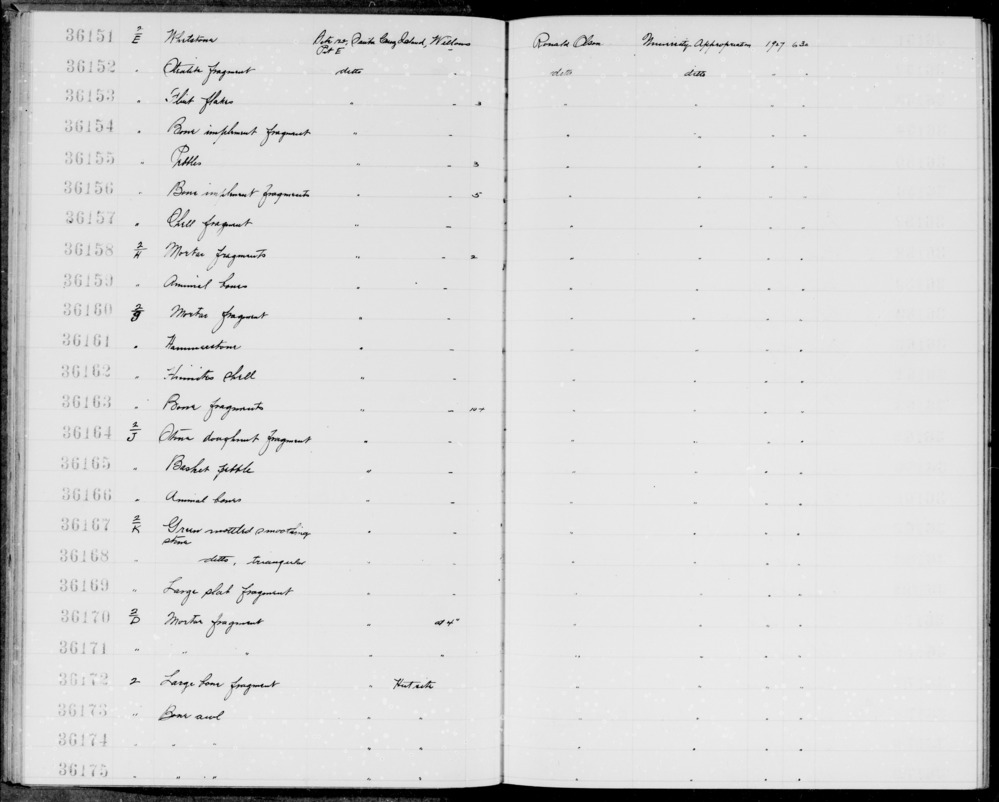 36151 2/E Whetstone Pit E Santa Cruz Island, Willows Ronald Olson University Appropriation 1927 630
36152 " Steatite fragment ditto " ditto ditto " "
36153 " Flint flakes " " 3 " " " "
36154 " Bone implement fragment " " " " " "
36155 " Pebbles " " 3 " " " "
36156 " Bone implement fragments " " 5 " " " "
36157 " Shell fragment " " " " " "
36158 2/H Mortar fragments " " 2 " " " "
36159 " Animal bones " " " " " "
36160 2/g Mortar fragment " " " " " "
36161 " Hammerstone " " " " " "
36162 " Hinnites shell " " " " " "
36163 " Bone fragments " " 10+ " " " "
36164 2/J Stone doughnut fragment " " " " " "
36165 " Basket pebble " " " " " "
36166 " Animal bones " " " " " "
36167 2/K Green mottled smoothing " " " " " "
stone
36168 " ditto, triangular " " " " " "
36169 " Large slab fragment " " " " " "
36170 2/D Mortar fragment " at 4" " " " "
36171 " " " " " " " " "
36172 2 Large bone fragment " Hut site " " " "
36173 " Bone awl " " " " " "
36174 " " " " " " " " "
36175 " " " " " " " " "